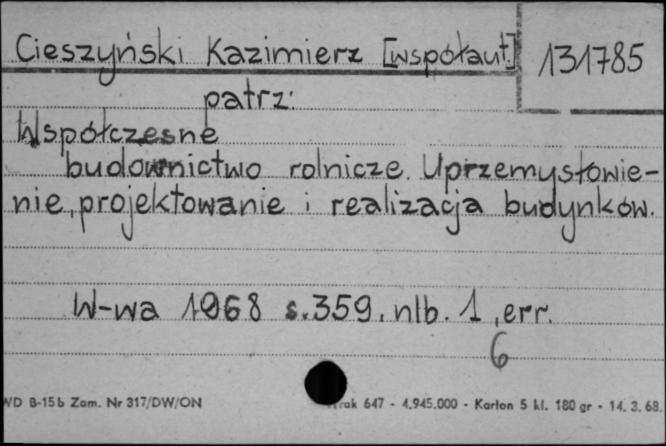 Cieszyński Kazimierz [współaut.] 131785
patrz:
Współczesne
budownictwo rolnicze. Uprzemysłowie-
nie, projektowanie i realizacja budynków.
W-wa 1968 s. 359, nlb. 1, err.
6
WD B-15b Zam. Nr 317/DW/ON 647 - 4.945.000 - Karton 5 kl. 180 gr - 14. 3. 68.